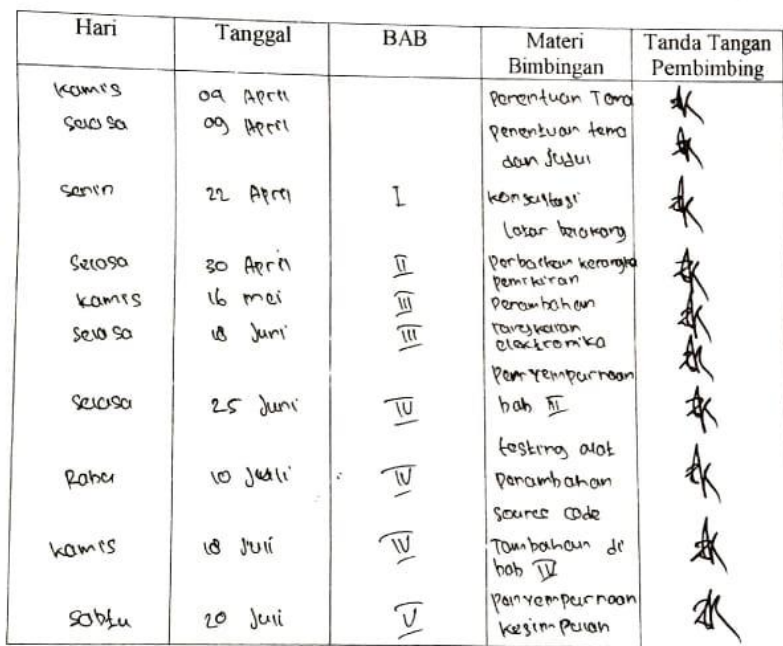 Hari Tanggal BAB Materi Bimbingan Tanda Tangan Pembimbing
Kamis 04 April Penentuan Tema
Selasa 09 April Penentuan tema
dan Judul
Senin 22 April I Konsultasi
latar belakang
Selasa 30 April II Perbaikan kerangka
pemikiran
Kamis 16 mei III Penambahan
Selasa 18 Juni III rangkaian
elektronika
Penyempurnaan
Selasa 25 Juni IV bab III
testing alat
Rabu 10 Juli IV Penambahan
source code
Kamis 18 Juli IV Tambahan di
bab IV
Penyempurnaan
Sabtu 20 Juli V Kesimpulan